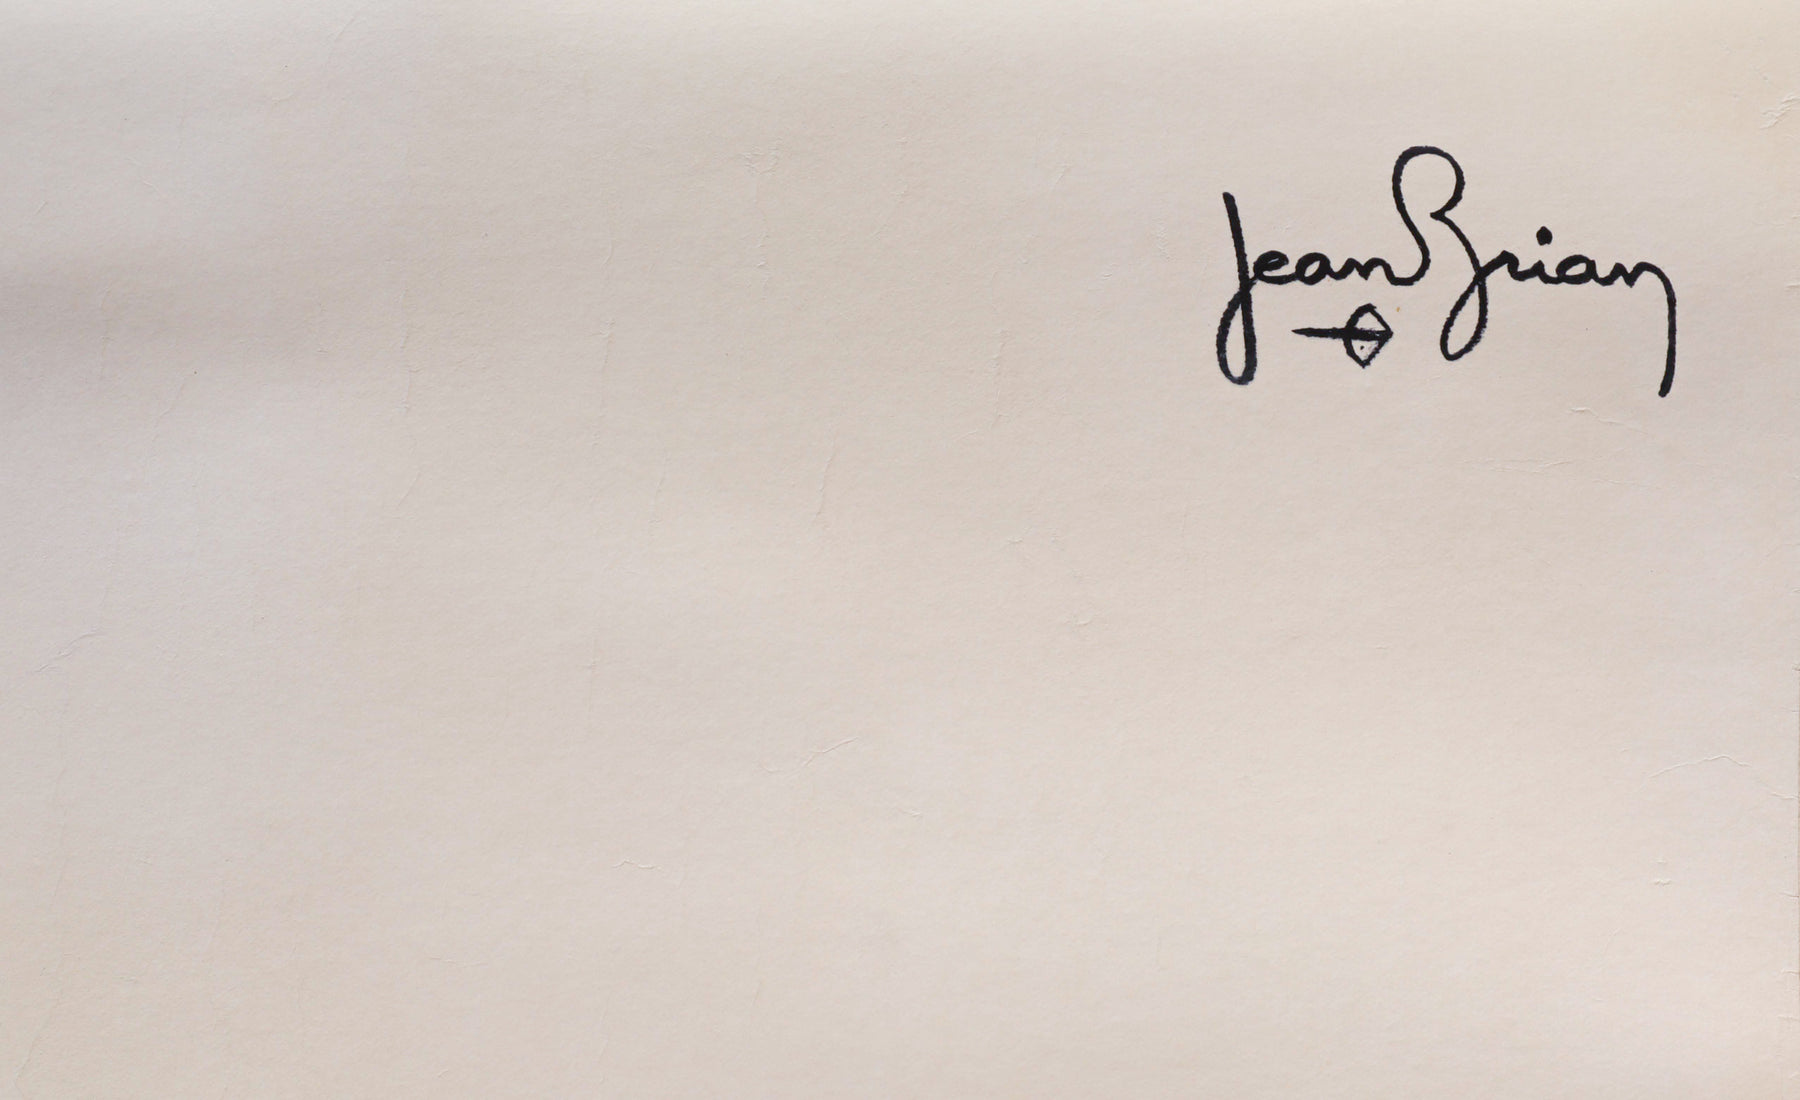 Jean Brian